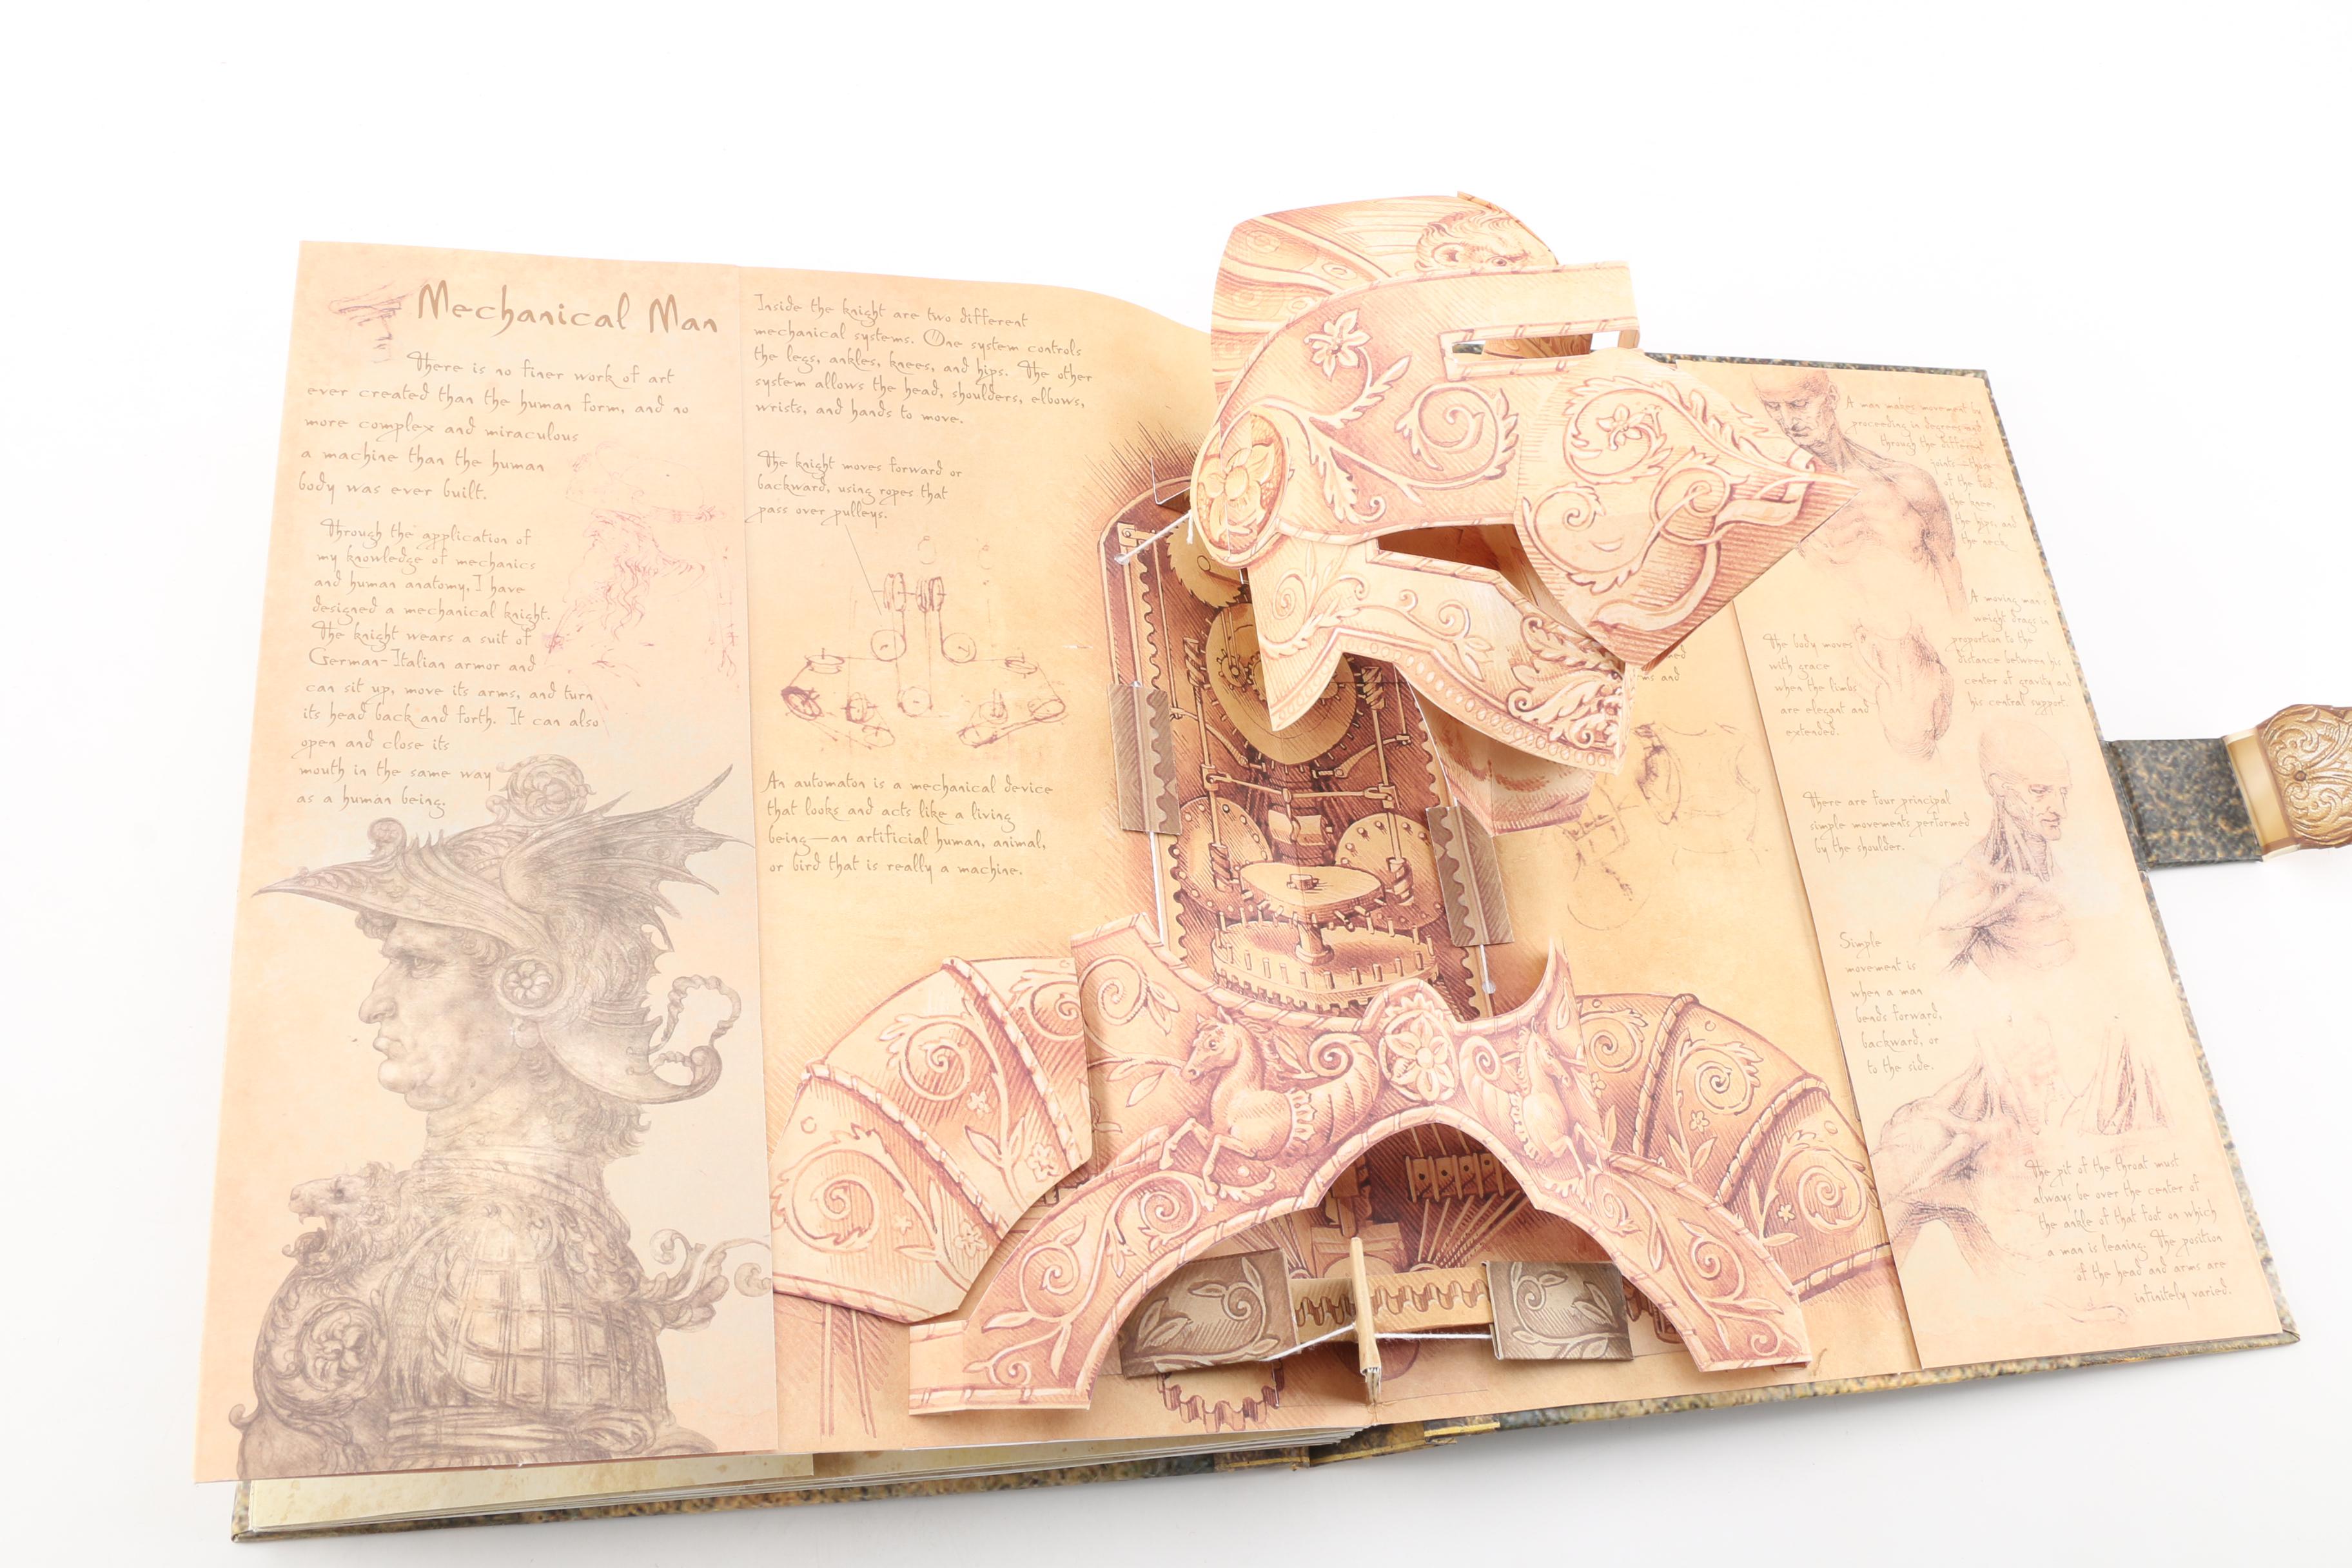 Mechanical Man
There is no finer work of art
ever created than the human form, and no
more complex and miraculous
a machine than the human
body was ever built.
Through the application of
my knowledge of mechanics
and human anatomy, I have
designed a mechanical knight.
The knight wears a suit of
German-Italian armor and
can sit up, move its arms, and turn
its head back and forth. It can also
open and close its
mouth in the same way
as a human being.
Inside the knight are two different
mechanical systems. One system controls
the legs, ankles, knees, and hips. The other
system allows the head, shoulders, elbows,
wrists, and hands to move.
The knight moves forward or
backward, using ropes that
pass over pulleys.
An automaton is a mechanical device
that looks and acts like a living
being—an artificial human, animal,
or bird that is really a machine.
and
A man makes movement by
proceeding in
through the different
of the foot,
the knee,
the hips, and
the neck.
A moving man's
weight drags in
proportion to the
distance between his
center of gravity and
his central support.
The body moves
with grace
when the limbs
are elegant and
extended.
There are four principal
simple movements performed
by the shoulder.
Simple
movement is
when a man
bends forward,
backward, or
to the side.
The pit of the throat must
always be over the center of
the ankle of that foot on which
a man is leaning. The position
of the head and arms are
infinitely varied.